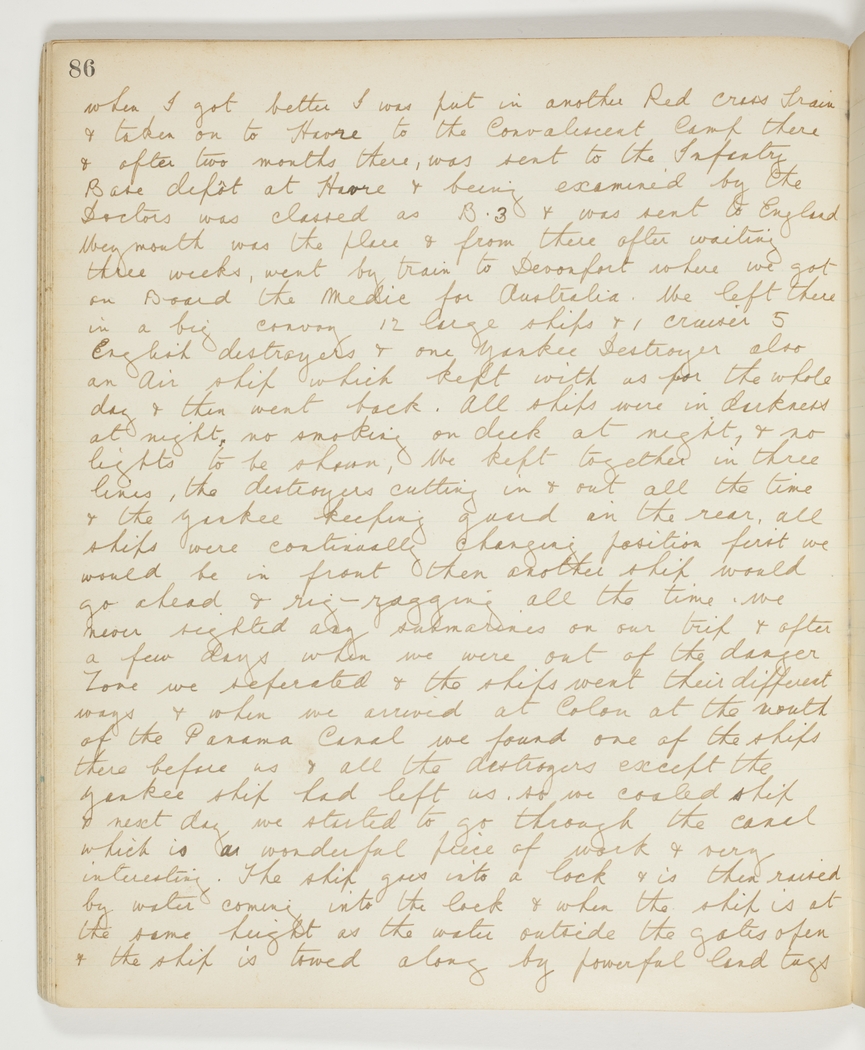 86
when I got better I was put in another Red cross Train
& taken on to Havre to the Convalescent Camp there
& after two months there, was sent to the Infantry
Base depôt at Havre & being examined by the
Doctors was classed as B.3 & was sent to England
Weymouth was the place & from there after waiting
three weeks, went by train to Devonport where we got
on Board the Medic for Australia. We left there
in a big convoy 12 large ships & 1 cruiser 5
English destroyers & one Yankee Destroyer also
an Air ship which kept with us for the whole
day & then went back. All ships were in darkness
at night, no smoking on deck at night, & no
lights to be shown, We kept together in three
lines, the destroyers cutting in & out all the time
& the Yankee keeping guard in the rear, all
ships were continually changing position first we
would be in front then another ship would
go ahead & zig-zagging all the time. We
never sighted any submarines on our trip & after
a few days when we were out of the danger
Zone we seperated & the ships went their different
ways & when we arrived at Colon at the mouth
of the Panama Canal we found one of the ships
there before us & all the destroyers except the
Yankee ship had left us. so we coaled ship
& next day we started to go through the canal
which is a wonderful piece of work & very
interesting. The ship goes into a lock & is then raised
by water coming into the lock & when the ship is at
the same height as the water outside the gates open
& the ship is towed along by powerful land tugs